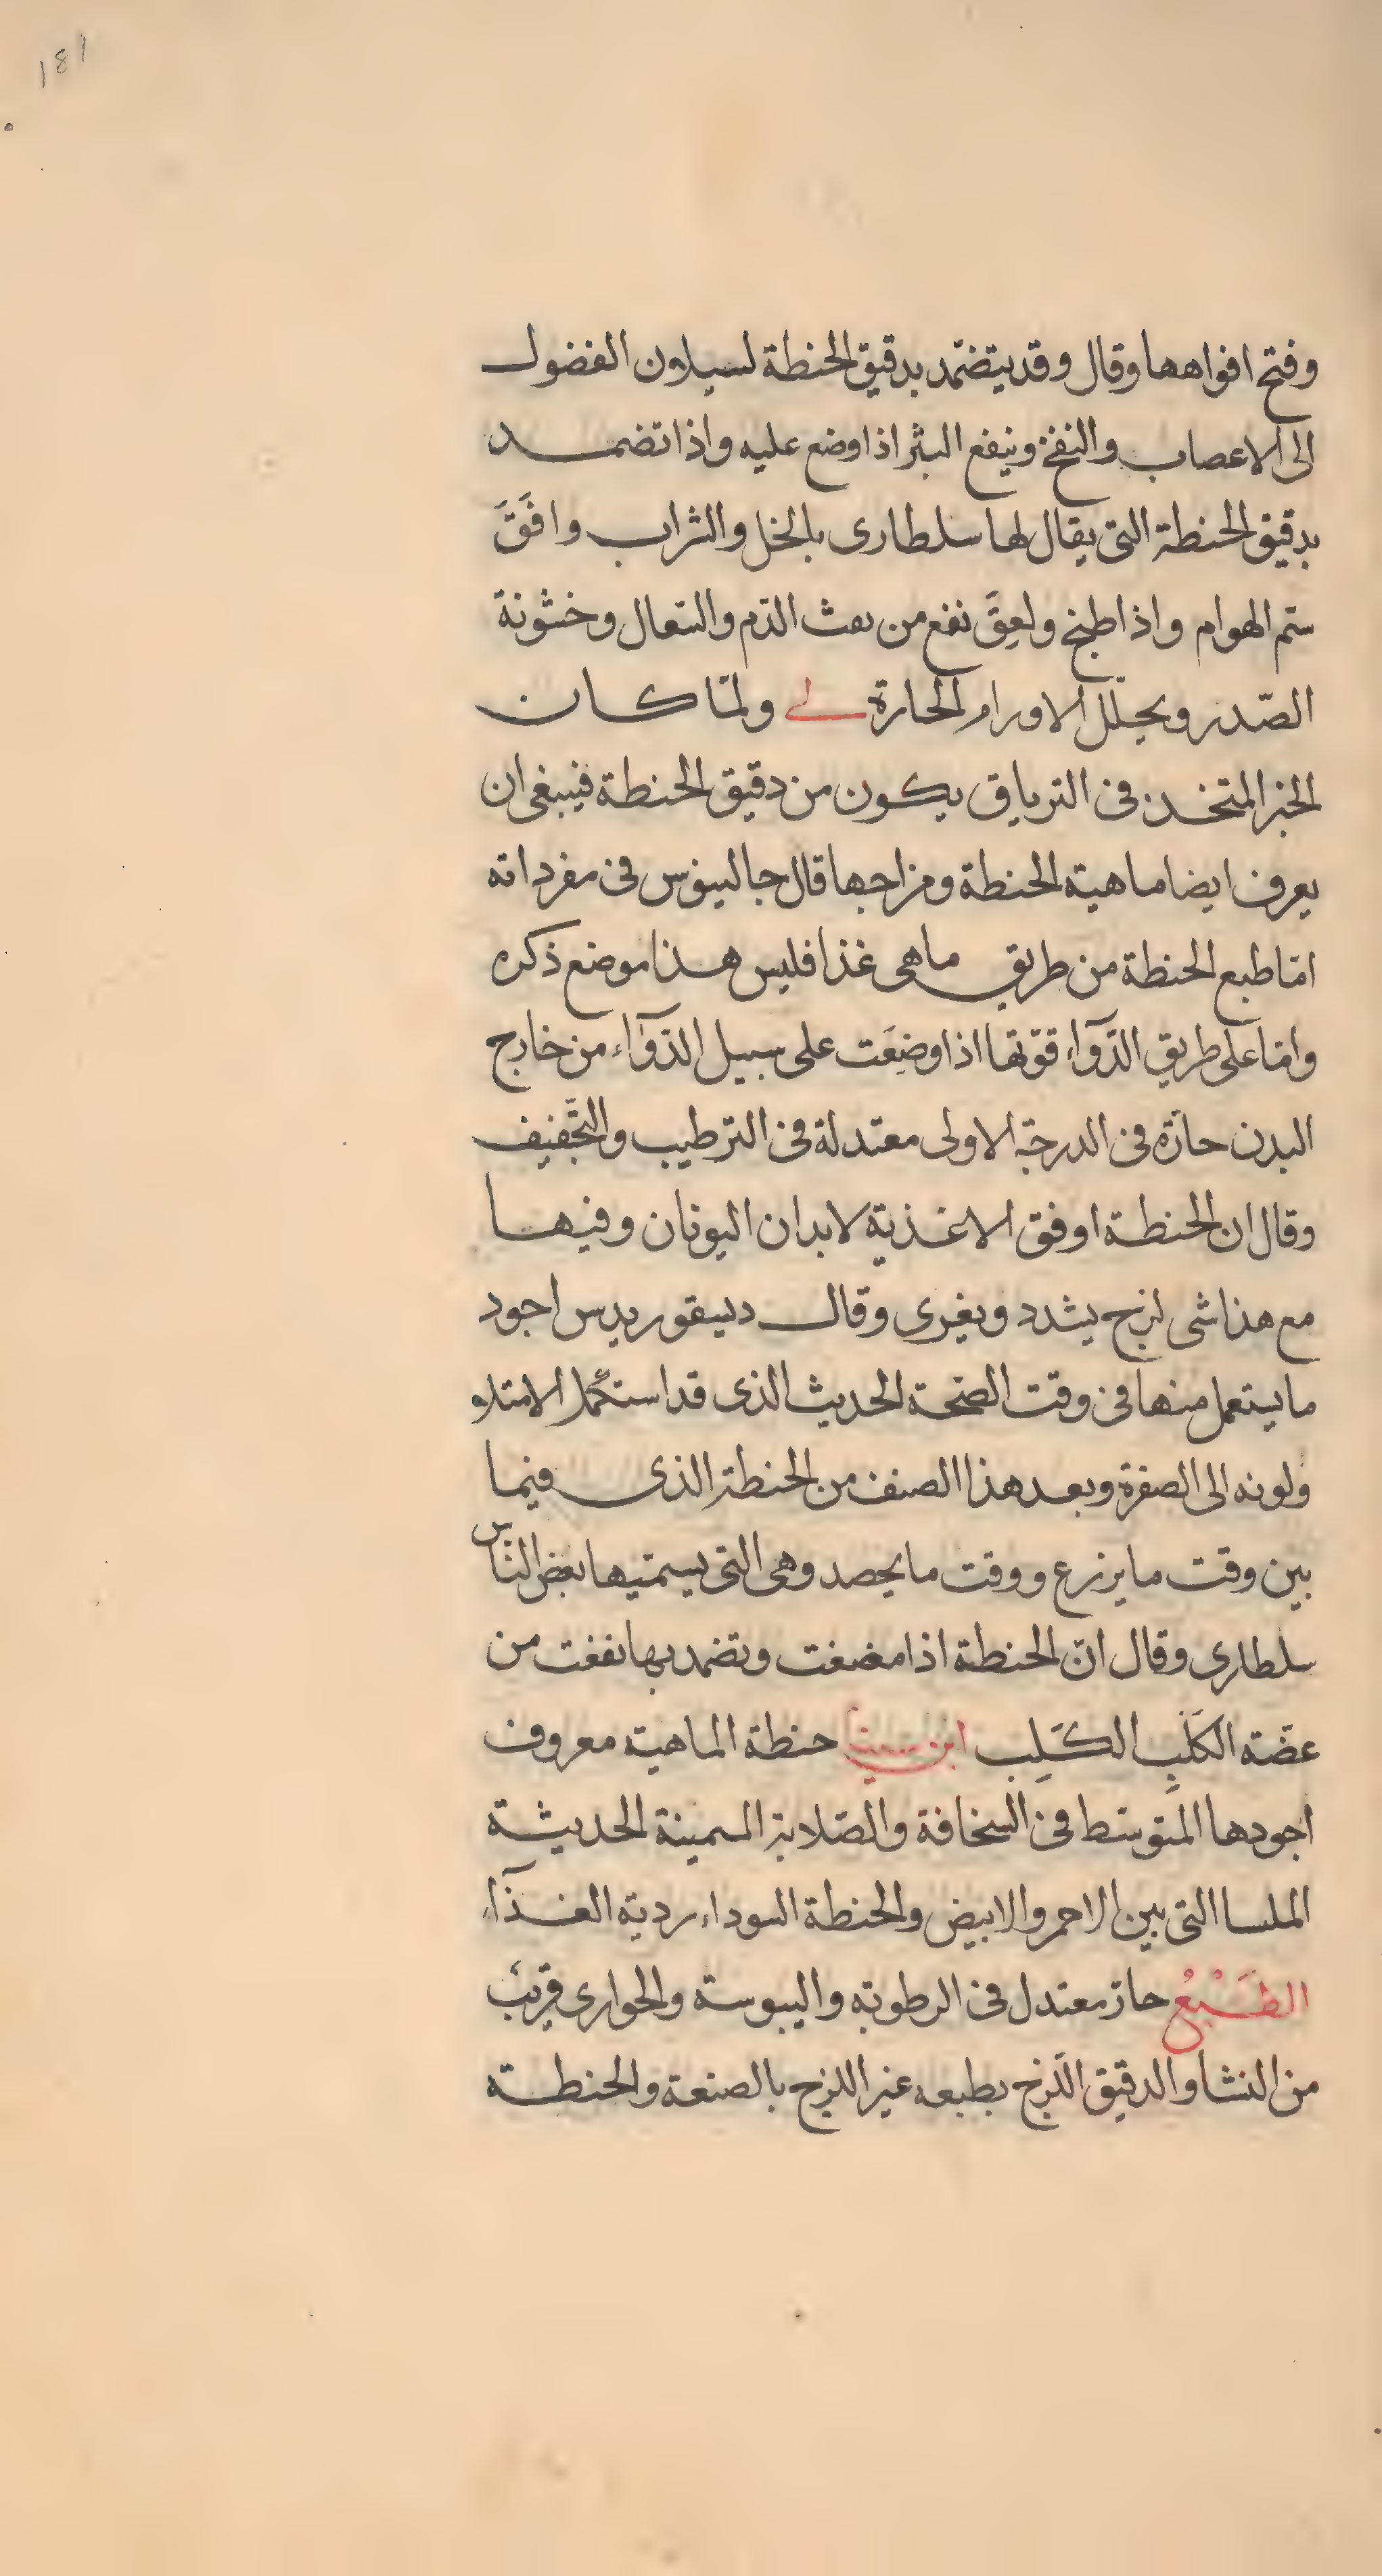 181
وفتح افواهها وقال وقد يتضمّد بدقيق الحنطة لسيلان الفضول
الى الاعصاب والنفخ وينفع البثر اذا وضع عليه واذا تضمد
بدقيق الحنطة التى يقال لها سلطارى بالخل والشراب وافَقَ
سمّ الهوام واذا طبخ ولعِقَ نفع من نفث الدّم والسّعال وخشونة
الصّدر ويحلّل الاورام الحارة لے ولمّا كان
الخبز المتخذ فى الترياق يكون من دقيق الحنطة فينبغى ان
يعرف ايضا ماهية الحنطة ومزاجها قال جالينوس فى مفرداته
امّا طبع الحنطة من طريق ماهى غذا فليس هذا موضع ذكره
وامّا على طريق الدّوآء قوّتها اذا وضِعَت على سبيل الدّوآء من خارج
البدن حارّة فى الدرجة الاولى معتدلة فى الترطيب والتَّجفيف
وقال ان الحنطة اوفق الاغذية لابدان اليونان وفيها
مع هذا شى لزج يشدد ويغرى وقال ديسقوريدس اجود
ما يستعمل منها فى وقت الصّحة الحديث الذى قد استكمل الامتلا
ولونه الى الصفرة وبعد هذا الصنف من الحنطة الذى فيما
بين وقت ما يزرع ووقت ما يحصد وهى التى يسمّيها بعض النّاس
سلطارى وقال انّ الحنطة اذا مضغت وتضمد بها نفعت من
عضّة الكَلْبِ الكَلِب ابن سينا حنطة الماهية معروف
اجودها المتوسّط فى السخافة والصّلابة السمينة الحديثة
الملسا التى بين الاحمر والابيض والحنطة السوداء ردية الغذآء
الطَّبْعُ حارّ معتدل فى الرطوبة واليبوسة والحوارى قريبٌ
من النشا والدقيق اللّزج بطبعه غير اللزج بالصنعة والحنطة